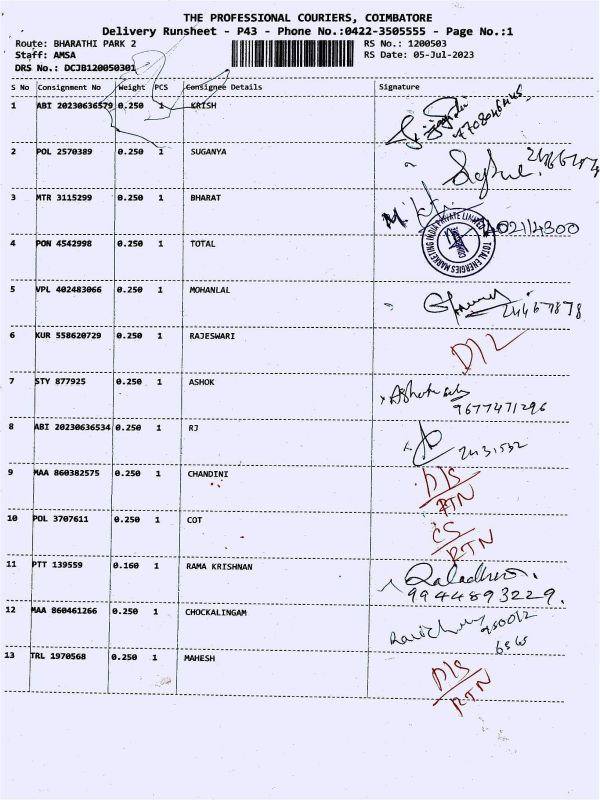 THE PROFESSIONAL COURIERS, COIMBATORE
Delivery Runsheet - P43 - Phone No.:0422-3505555 - Page No.:1
Route: BHARATHI PARK 2 RS No.: 1200503
Staff: AMSA RS Date: 05-Jul-2023
DRS No.: DCJB120050301
S No Consignment No Weight PCS Consignee Details Signature
1 ABI 20230636579 0.250 1 KRISH
2 POL 2570389 0.250 1 SUGANYA
3 MTR 3115299 0.250 1 BHARAT
TOTAL ENERGIES MARKETING INDIA PRIVATE LIMITED
4 PON 4542998 0.250 1 TOTAL
5 VPL 402483066 0.250 1 MOHANLAL
6 KUR 558620729 0.250 1 RAJESWARI D/L
7 STY 877925 0.250 1 ASHOK
9677471296
8 ABI 20230636534 0.250 1 RJ
2431532
9 MAA 860382575 0.250 1 CHANDINI D/S
RTN
10 POL 3707611 0.250 1 COT CS
RTN
11 PTT 139559 0.160 1 RAMA KRISHNAN
9944893229.
12 MAA 860461266 0.250 1 CHOCKALINGAM
13 TRL 1970568 0.250 1 MAHESH D/S
RTN